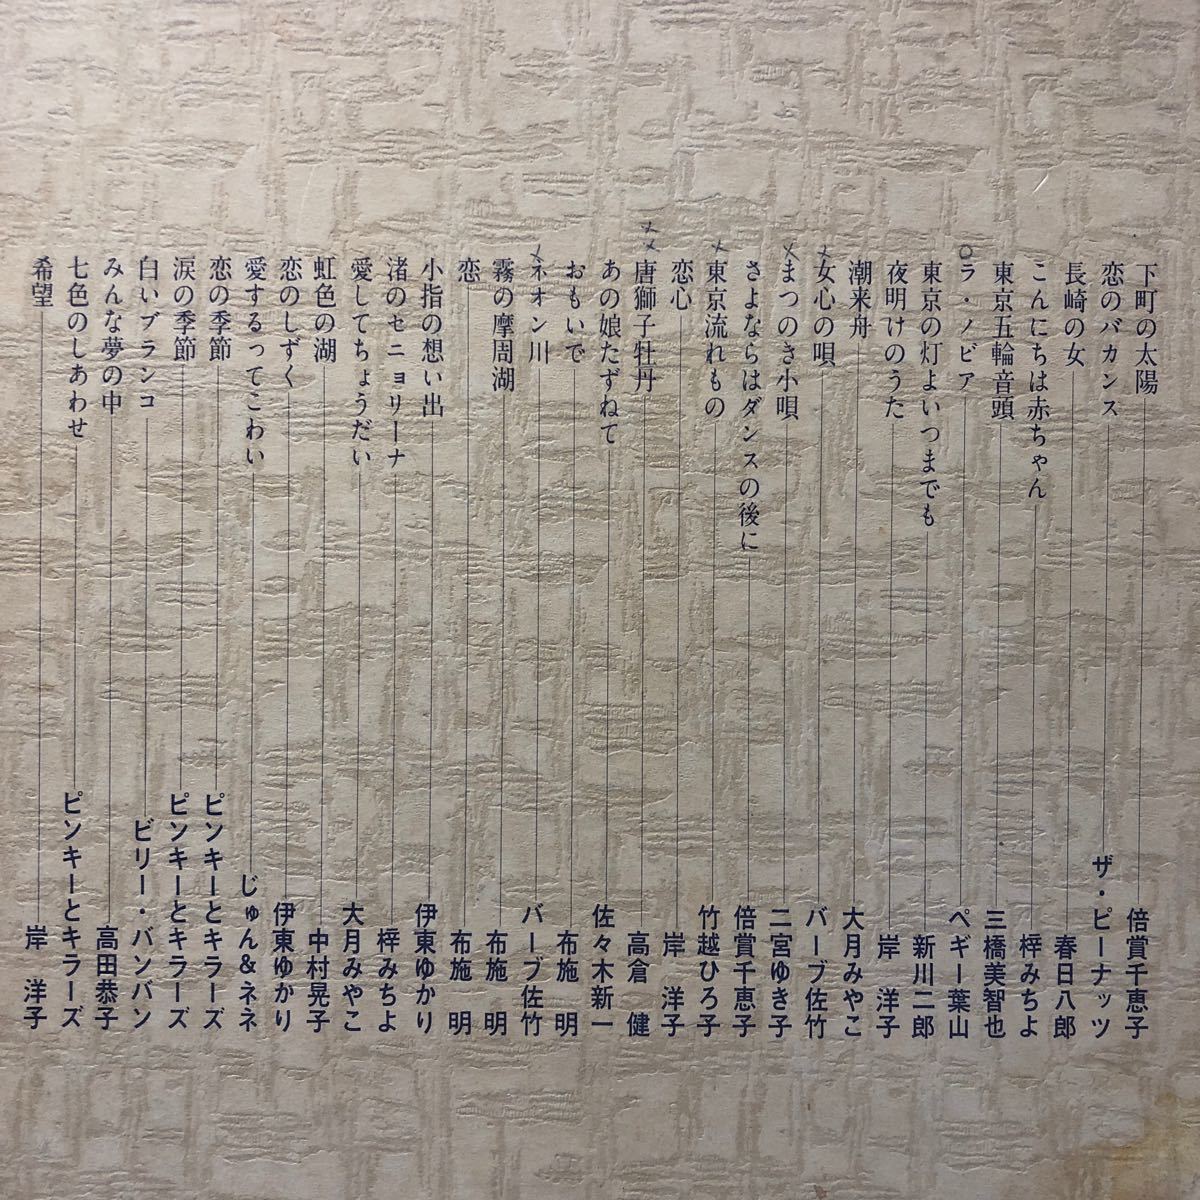 下町の太陽 倍賞千恵子
恋のバカンス ザ・ピーナッツ
長崎の女 春日八郎
こんにちは赤ちゃん 梓みちよ
東京五輪音頭 三橋美智也
○ラ・ノビア ペギー葉山
東京の灯よいつまでも 新川二郎
夜明けのうた 岸 洋子
潮来舟 大月みやこ
×女心の唄 バーブ佐竹
×まつのき小唄 二宮ゆき子
さよならはダンスの後に 倍賞千恵子
×東京流れもの 竹越ひろ子
恋心 岸 洋子
××唐獅子牡丹 高倉 健
あの娘たずねて 佐々木新一
おもいで 布施 明
×ネオン川 バーブ佐竹
霧の摩周湖 布施 明
恋 布施 明
小指の想い出 伊東ゆかり
渚のセニョリーナ 梓みちよ
愛してちょうだい 大月みやこ
虹色の湖 中村晃子
恋のしずく 伊東ゆかり
愛するってこわい じゅん&ネネ
恋の季節 ピンキーとキラーズ
涙の季節 ピンキーとキラーズ
白いブランコ ビリー・バンバン
みんな夢の中 高田恭子
七色のしあわせ ピンキーとキラーズ
希望 岸 洋子